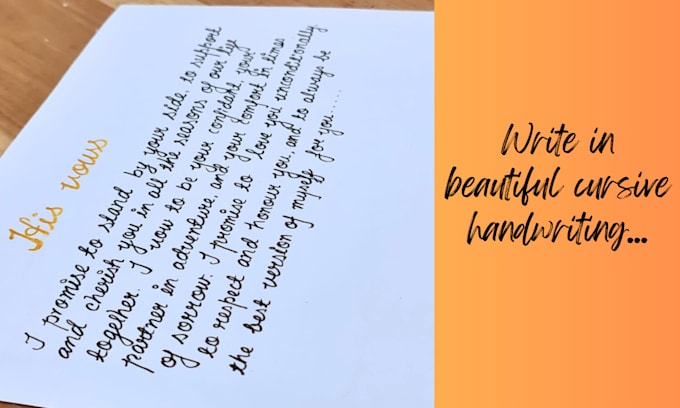 His vows
I promise to stand by your side, to support
and cherish you in all the seasons of our life
together. I vow to be your confidant, your
partner in adventure, and your comfort in times
of sorrow. I promise to love you unconditionally
to respect and honour you, and to always be
the best version of myself for you.....
Write in
beautiful cursive
handwriting...